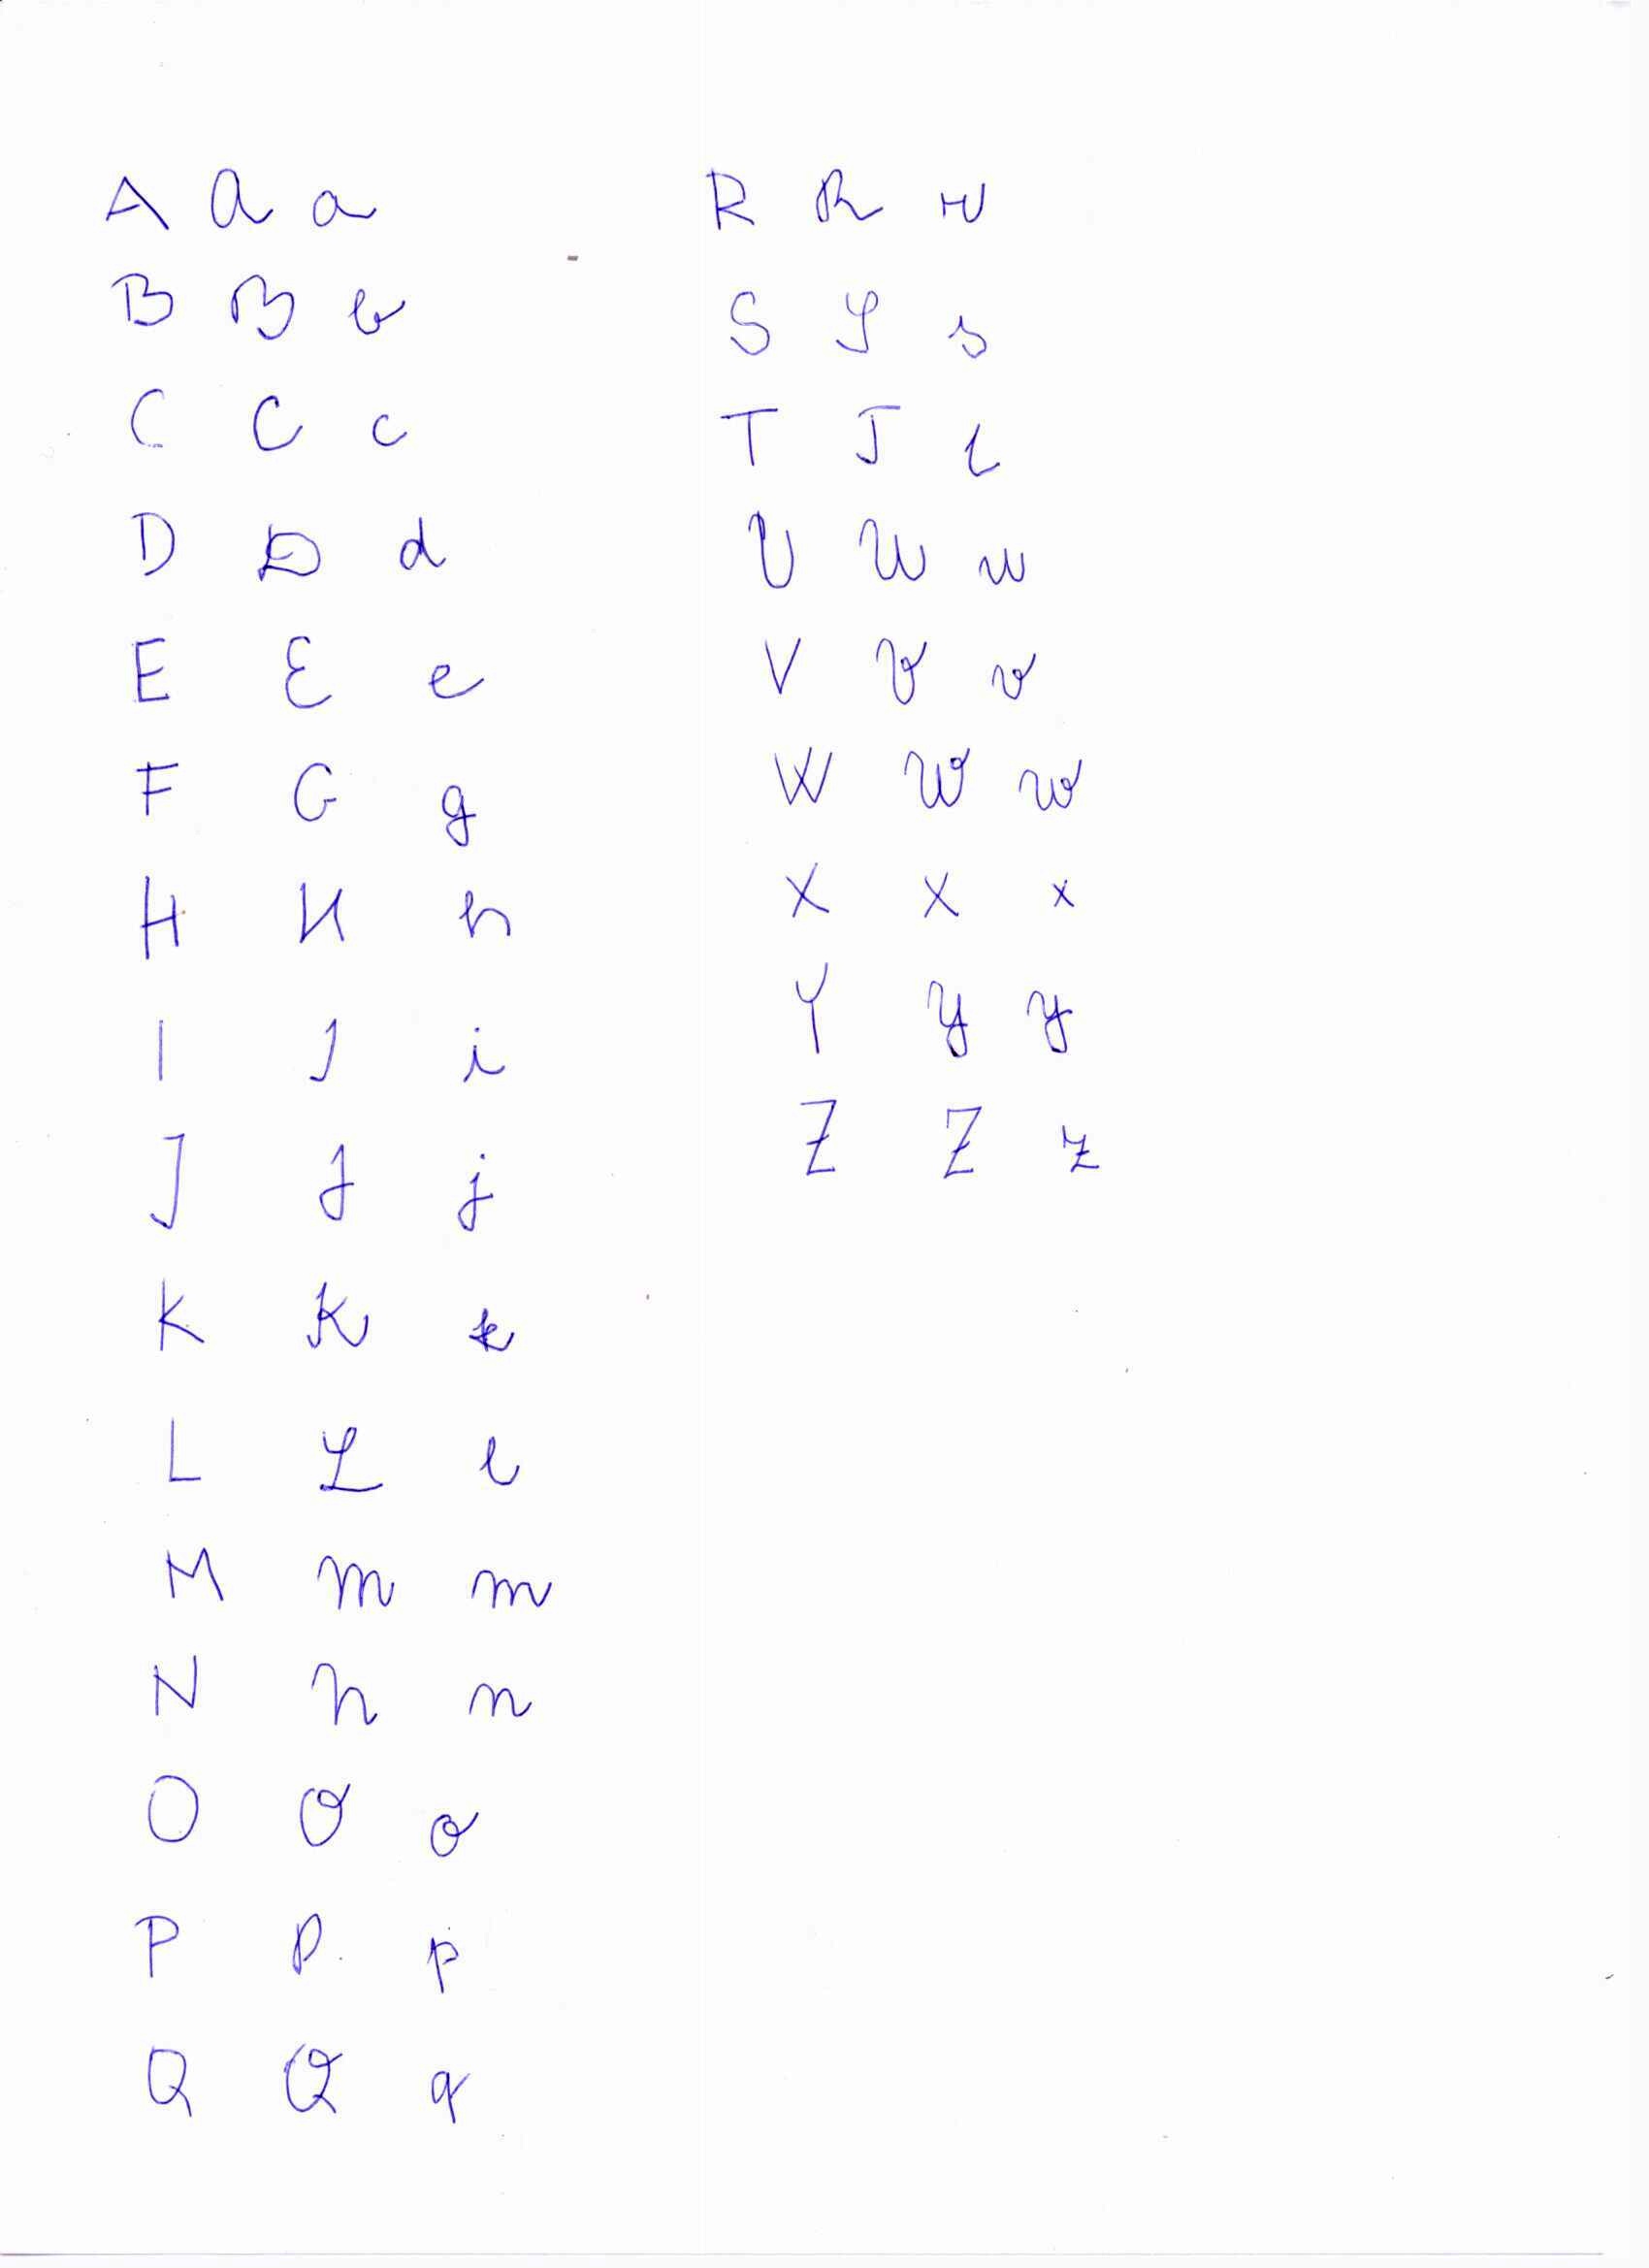 A A a
B B b
C C c
D D d
E E e
F G g
H H h
I I i
J J j
K K k
L L l
M M m
N N n
O O o
P P p
Q Q q
R R r
S S s
T T t
U U u
V V v
W W w
X X x
Y Y y
Z Z z